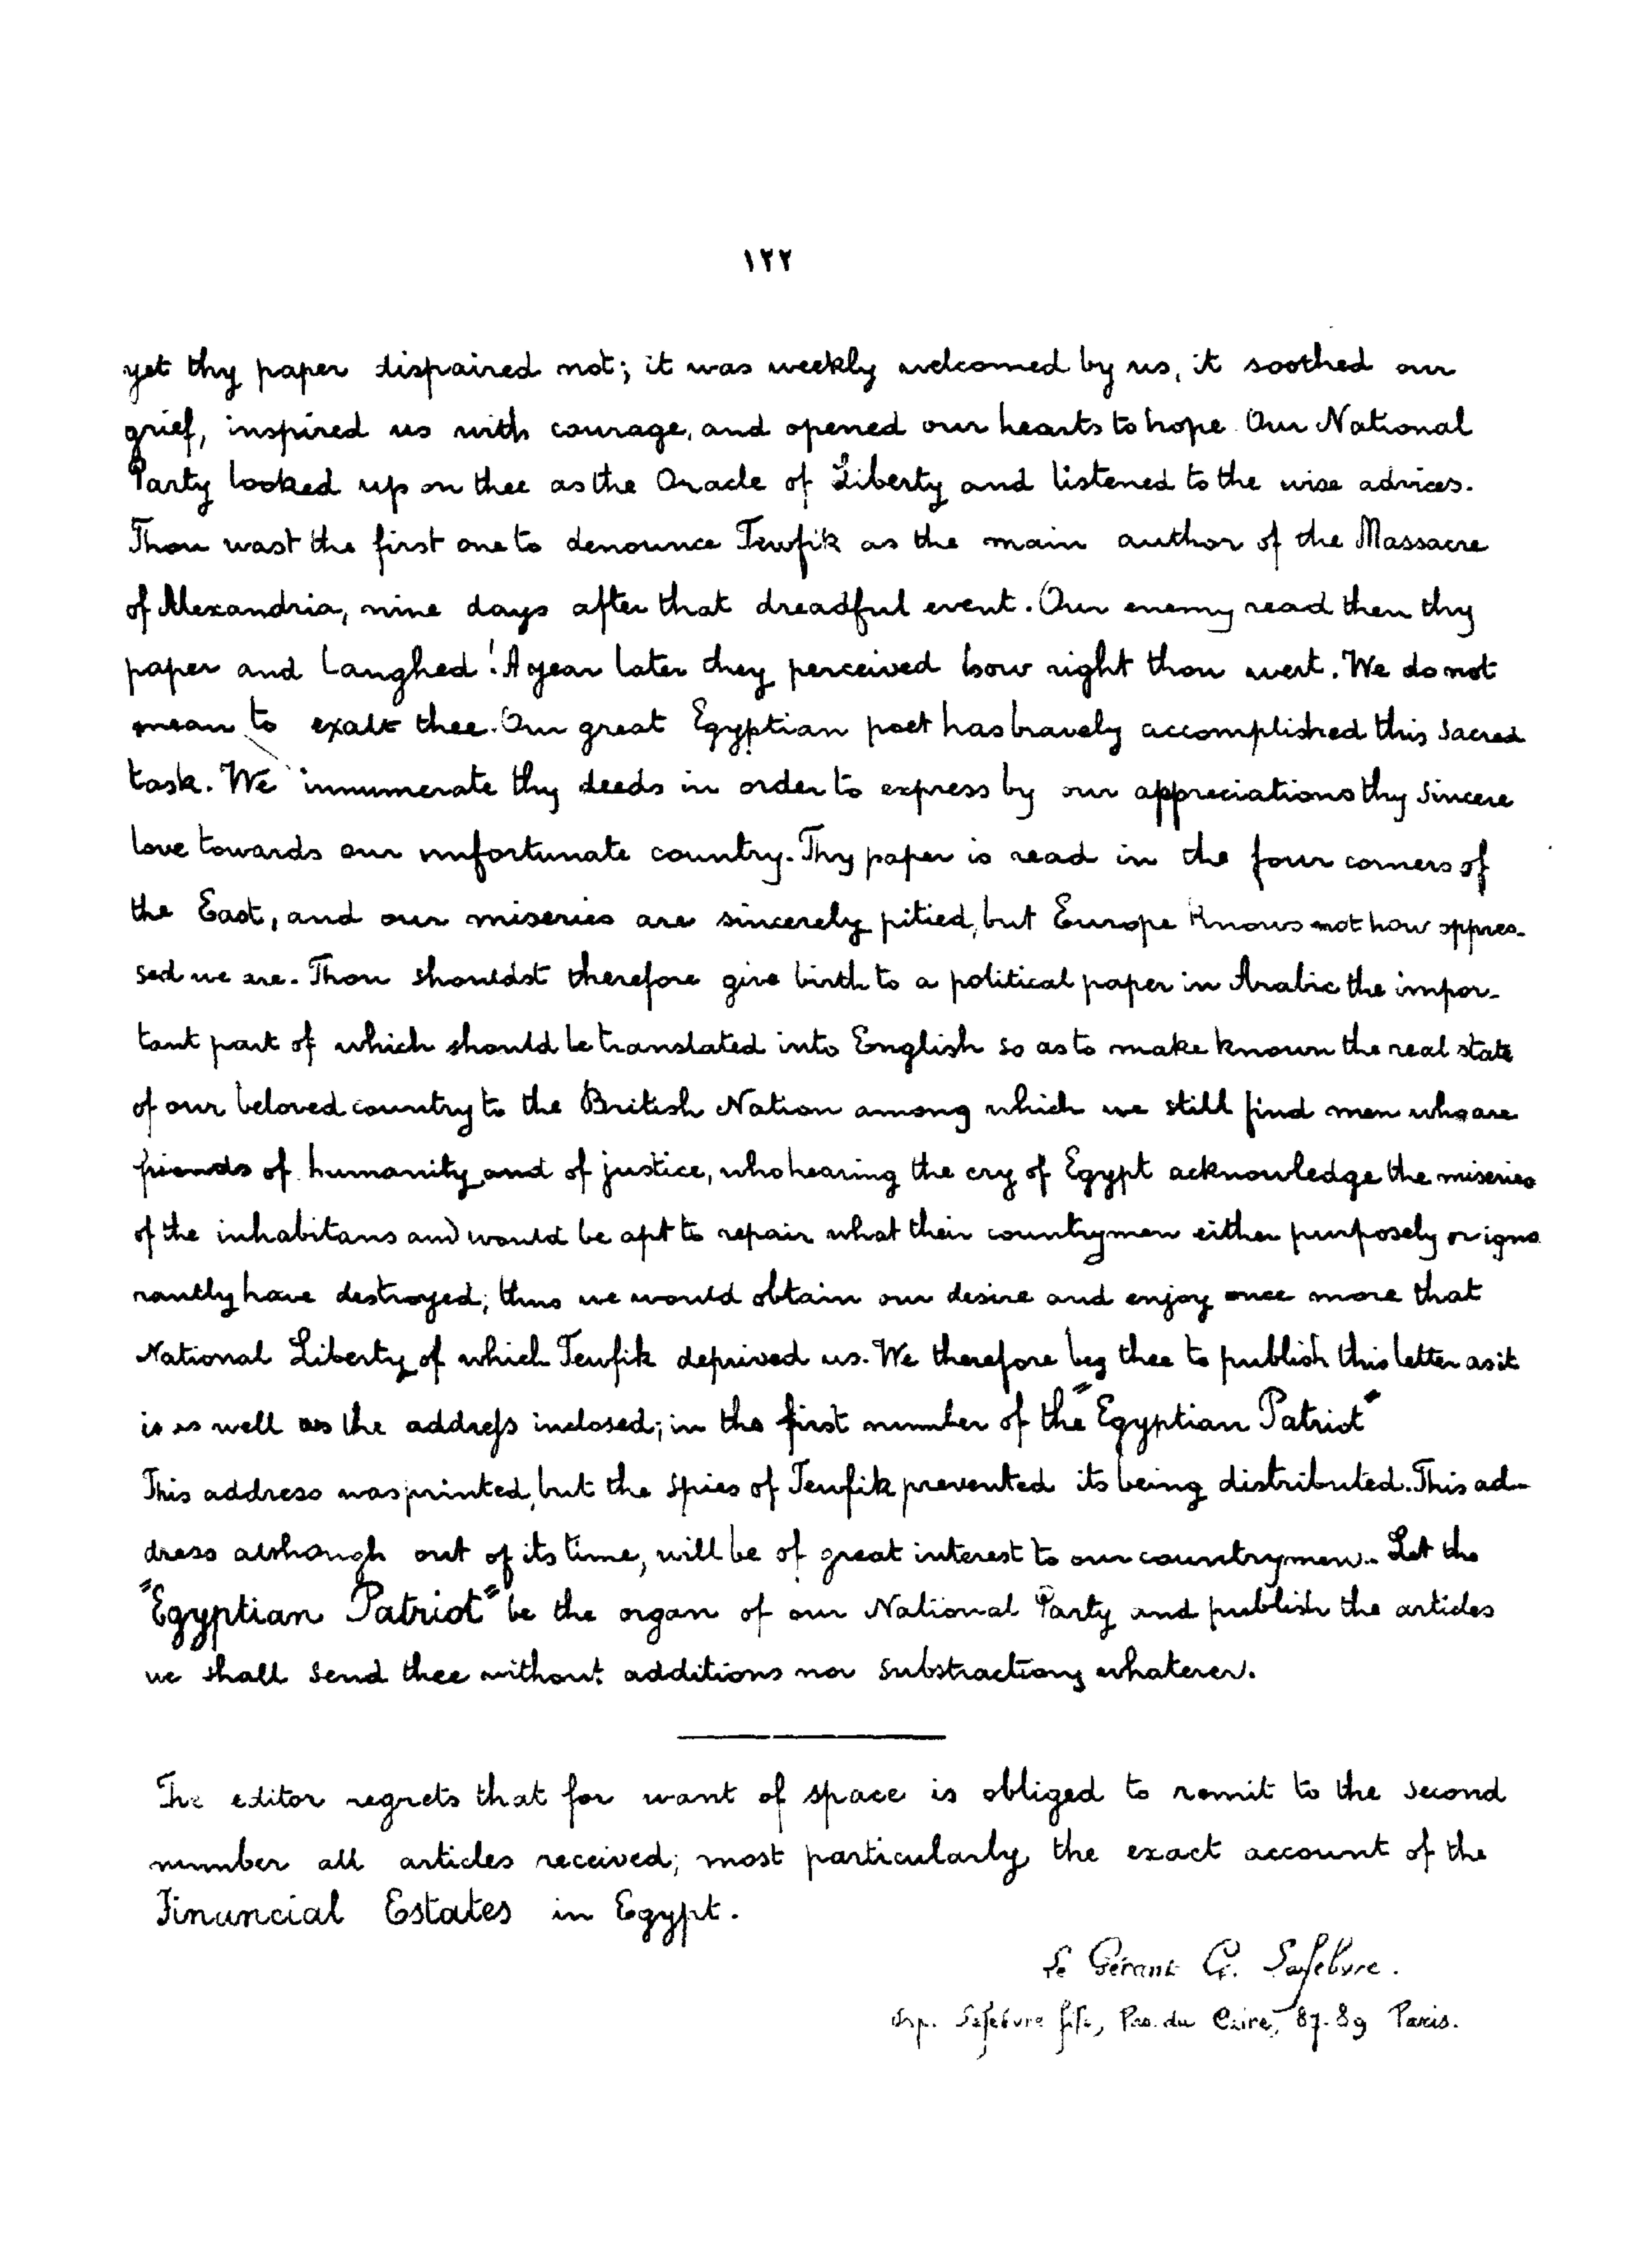 ١٢٢
yet thy paper dispaired not; it was weekly welcomed by us, it soothed our
grief, inspired us with courage, and opened our hearts to hope. Our National
Party looked up on thee as the Oracle of Liberty and listened to the wise advices.
Thou wast the first one to denounce Tewfik as the main author of the Massacre
of Alexandria, nine days after that dreadful event. Our enemy read then thy
paper and laughed! A year later they perceived how right thou wert. We do not
mean to exalt thee. Our great Egyptian poet has bravely accomplished this sacred
task. We innumerate thy deeds in order to express by our appreciations thy sincere
love towards our unfortunate country. Thy paper is read in the four corners of
the East, and our miseries are sincerely pitied, but Europe knows not how oppres-
sed we are. Thou shouldst therefore give birth to a political paper in Arabic the impor-
tant part of which should be translated into English so as to make known the real state
of our beloved country to the British Nation among which we still find men who are
friends of humanity and of justice, who hearing the cry of Egypt acknowledge the miseries
of the inhabitans and would be apt to repair what their countrymen either purposely or igno
rantly have destroyed; thus we would obtain our desire and enjoy once more that
National Liberty of which Tewfik deprived us. We therefore beg thee to publish this letter as it
is as well as the address inclosed; in the first number of the "Egyptian Patriot"
This address was printed, but the spies of Tewfik prevented its being distributed. This ad-
dress although out of its time, will be of great interest to our countrymen.. Let the
"Egyptian Patriot" be the organ of our National Party and publish the articles
we shall send thee without additions nor substractions whatever.
The editor regrets that for want of space is obliged to remit to the second
number all articles received; most particularly, the exact account of the
Financial Estates in Egypt.
Le Gérant G. Lefebvre.
Imp. Lefebvre fils, Pas. du Caire, 87-89 Paris.